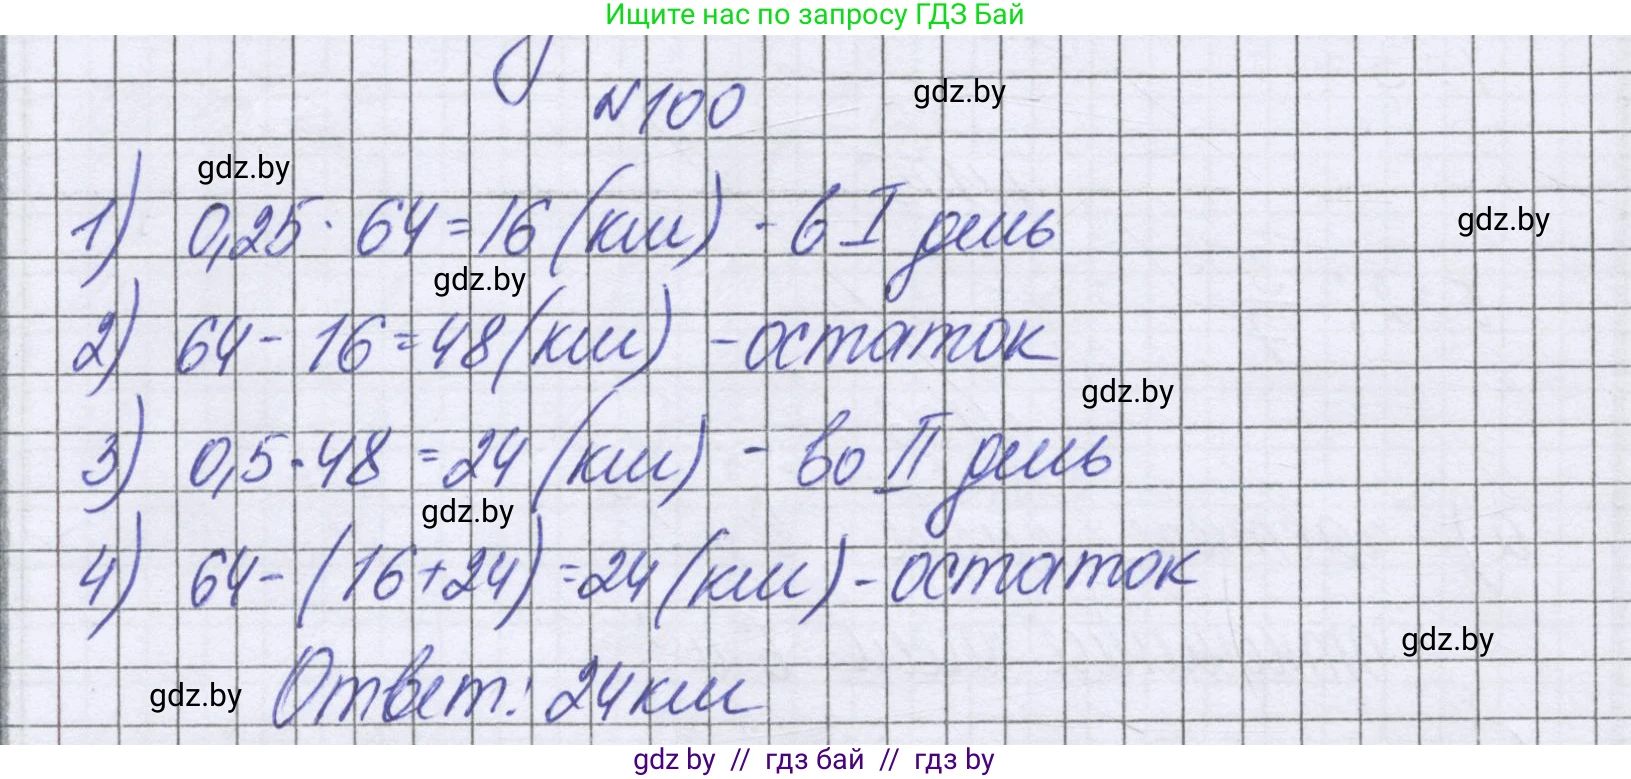 Ищите нас по запросу ГДЗ Бай
№100
gdz.by
gdz.by
1) 0,25 · 64 = 16 (км) - в I день
gdz.by
gdz.by
2) 64 - 16 = 48 (км) - остаток
gdz.by
3) 0,5 · 48 = 24 (км) - во II день
gdz.by
4) 64 - (16 + 24) = 24 (км) - остаток
gdz.by
Ответ: 24 км
gdz.by
gdz by // гдз бай // гдз by